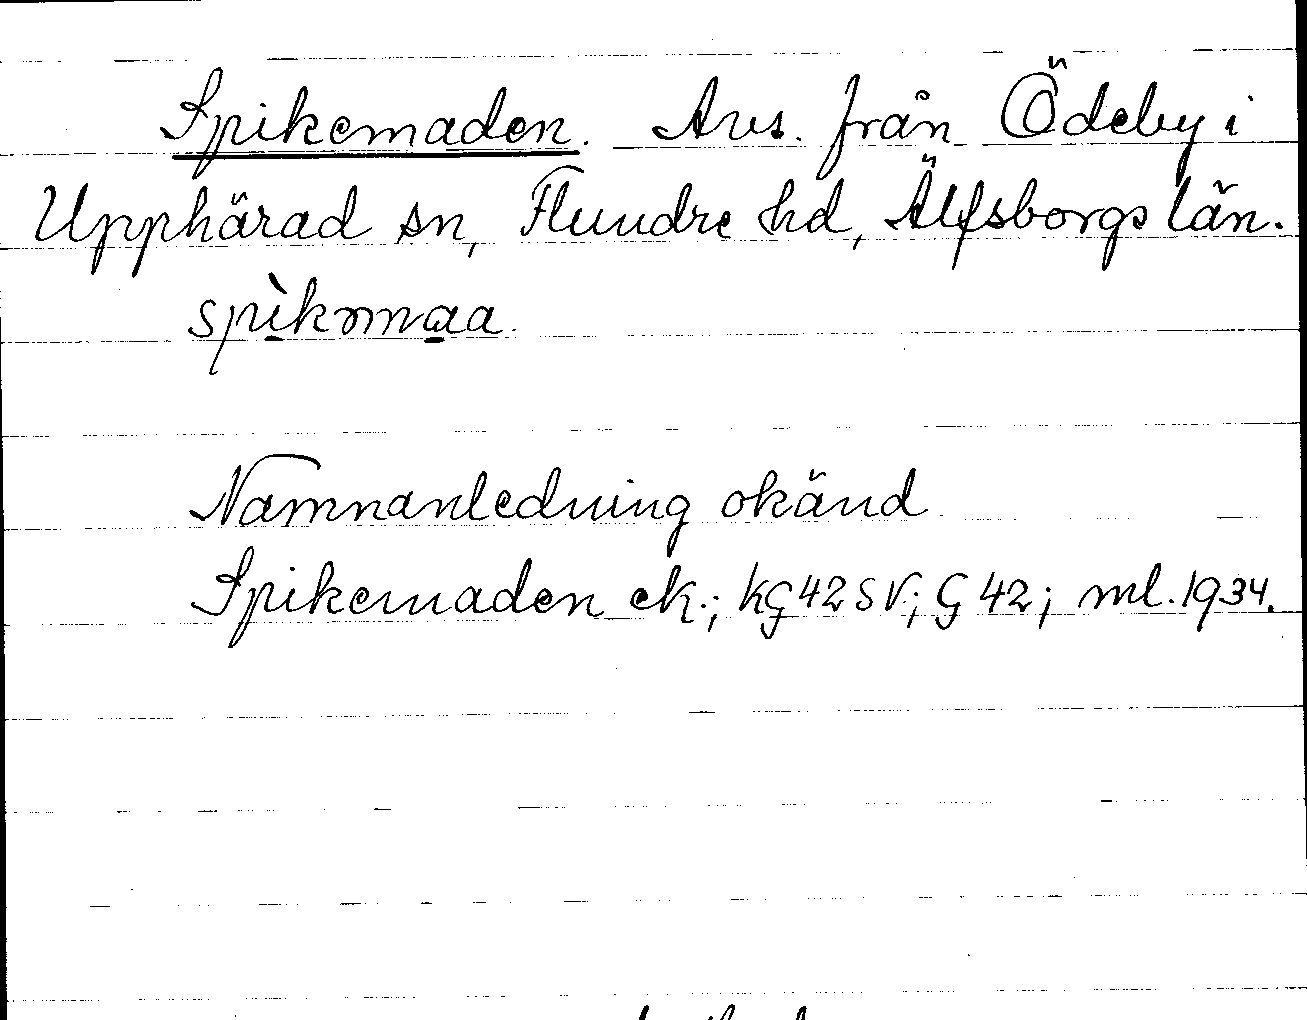 Spikemaden. Avs. från Ödeby i
Upphärad sn, Flundre hd, Älfsborgs län.
Namnanledning okänd
Spikemaden ek.; kG 42 SV; G 42; ml. 1934.